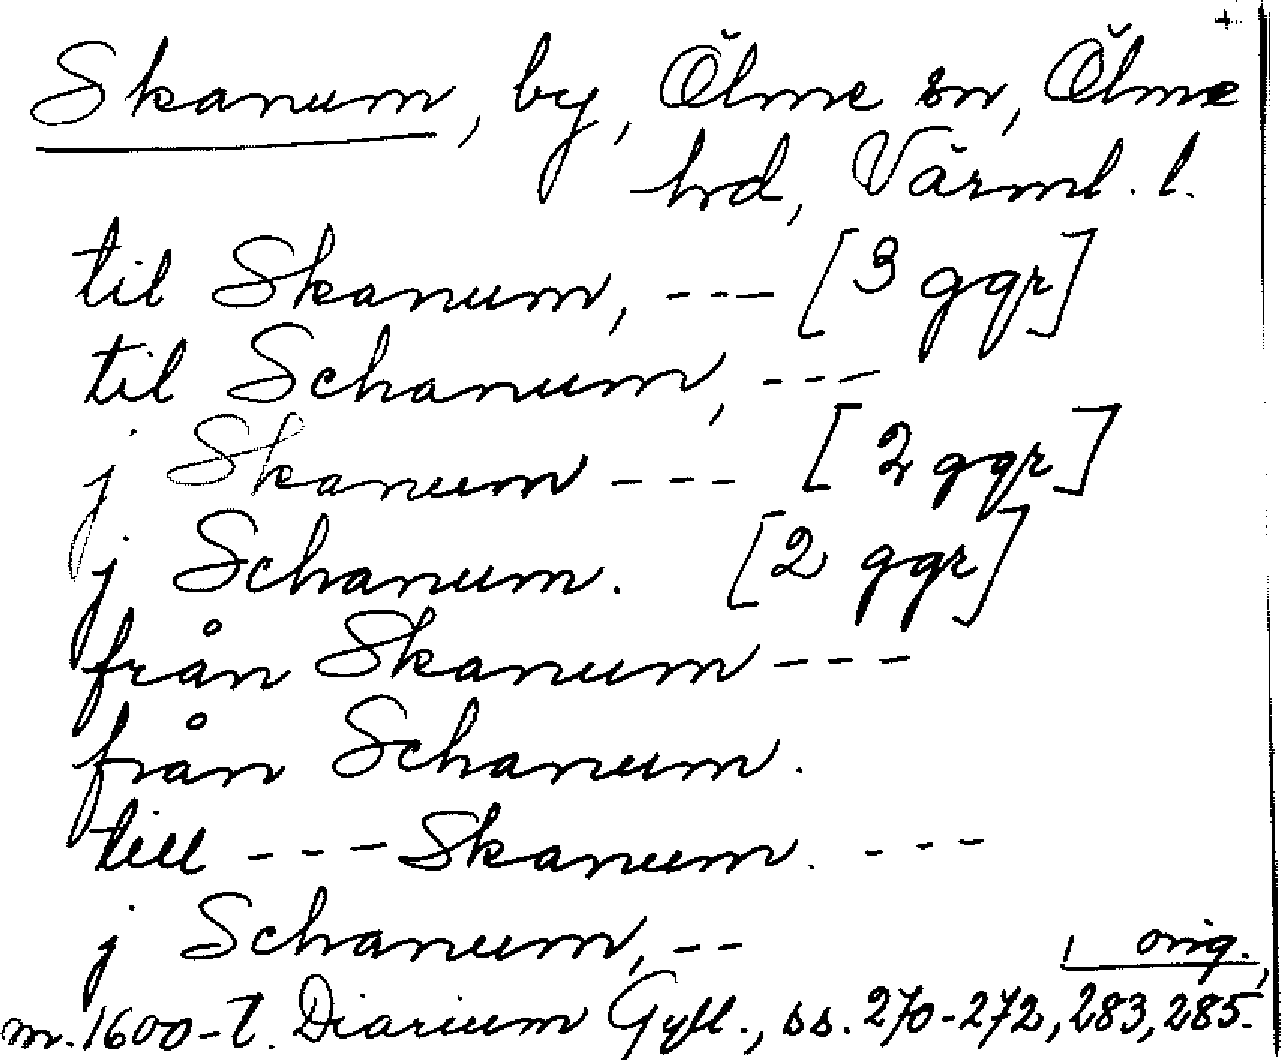 +
Skanum, by, Ölme sn, Ölme
hd, Värml. l.
til Skanum, --- [3 ggr]
til Schanum, ---
j Skanum --- [2 ggr]
j Schanum. [2 ggr]
från Skanum ---
från Schanum.
till --- Skanum. ---
j Schanum, --
1 orig.,
m. 1600-t. Diarium Gyll., ss. 270-272, 283, 285.